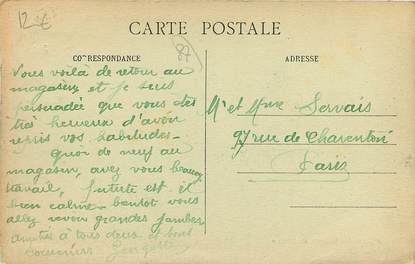 12€
CARTE POSTALE
CORRESPONDANCE
87
ADRESSE
Vous voilà de retour au
magasin et je suis
persuadée que vous êtes
très heureux d'avoir
repris vos habitudes -
Quoi de neuf au
magasin, avez vous beaucoup
travail, est il
bien calme - bientôt vous
allez revoir grandes jambes
amitiés à tous deux et bons
souvenirs
Mr et Mme Servais
97 rue de Charenton
Paris